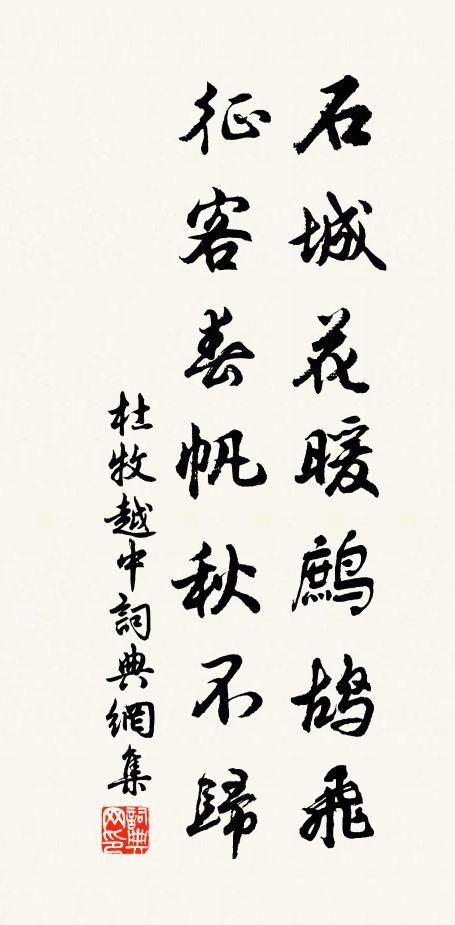 石城花暖鷓鴣飛
征客春帆秋不歸
杜牧越中詞典網集
詞典网印